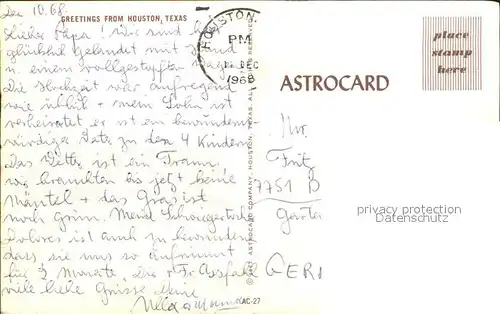 Dez 10. 68.
GREETINGS FROM HOUSTON, TEXAS
Lieber Papa! Wir sind hier
glücklich gelandet mit Hund
u. einem vollgestopften Wagen
Die Hochzeit war aufregend
wie üblich + mein Sohn ist
verheiratet er ist ein bewunderns-
würdiger Vater zu den 4 Kindern
Das Wetter ist ein Traum,
wir brauchten bis jetzt keine
Mäntel + das Gras ist
noch grün. Meine Schwiegertochter
Dolores ist auch zu bewundern
dass sie uns so aufnimmt
für 2 Monate.
viele liebe Grüsse Deine
HOUSTON,
PM
DEC
1968
ASTROCARD
place
stamp
here
© ASTROCARD COMPANY, HOUSTON, TEXAS. ALL
AC-27
Fritz
7751 B
privacy protection
Datenschutz
GER